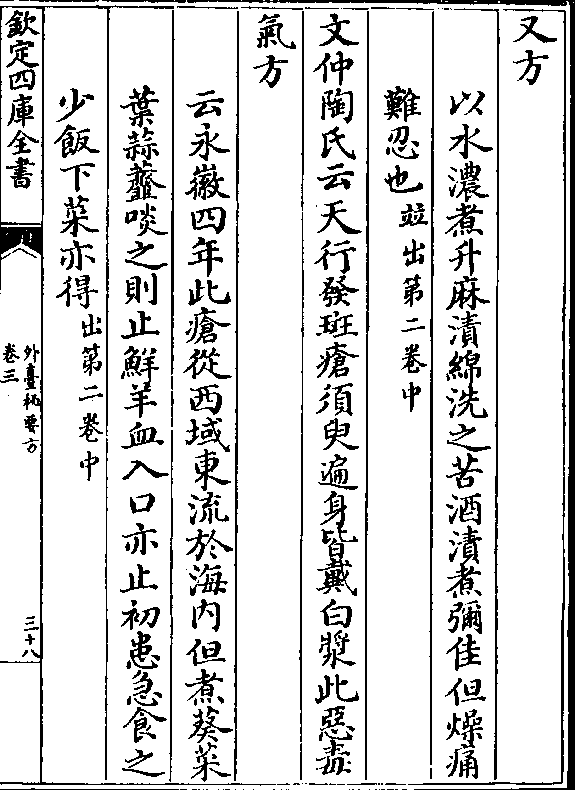 又方
以水濃煮升麻漬綿洗之苦酒漬煮彌佳但燥痛
難忍也竝出第二卷中
文仲陶氏云天行發斑瘡須臾遍身皆戴白漿此惡毒
氣方
云永徽四年此瘡從西域東流於海内但煮葵菜
葉蒜虀啖之則止鮮羊血入口亦止初患急食之
少飯下菜亦得出第二卷中
欽定四庫全書
外臺秘要方
卷三
三十八